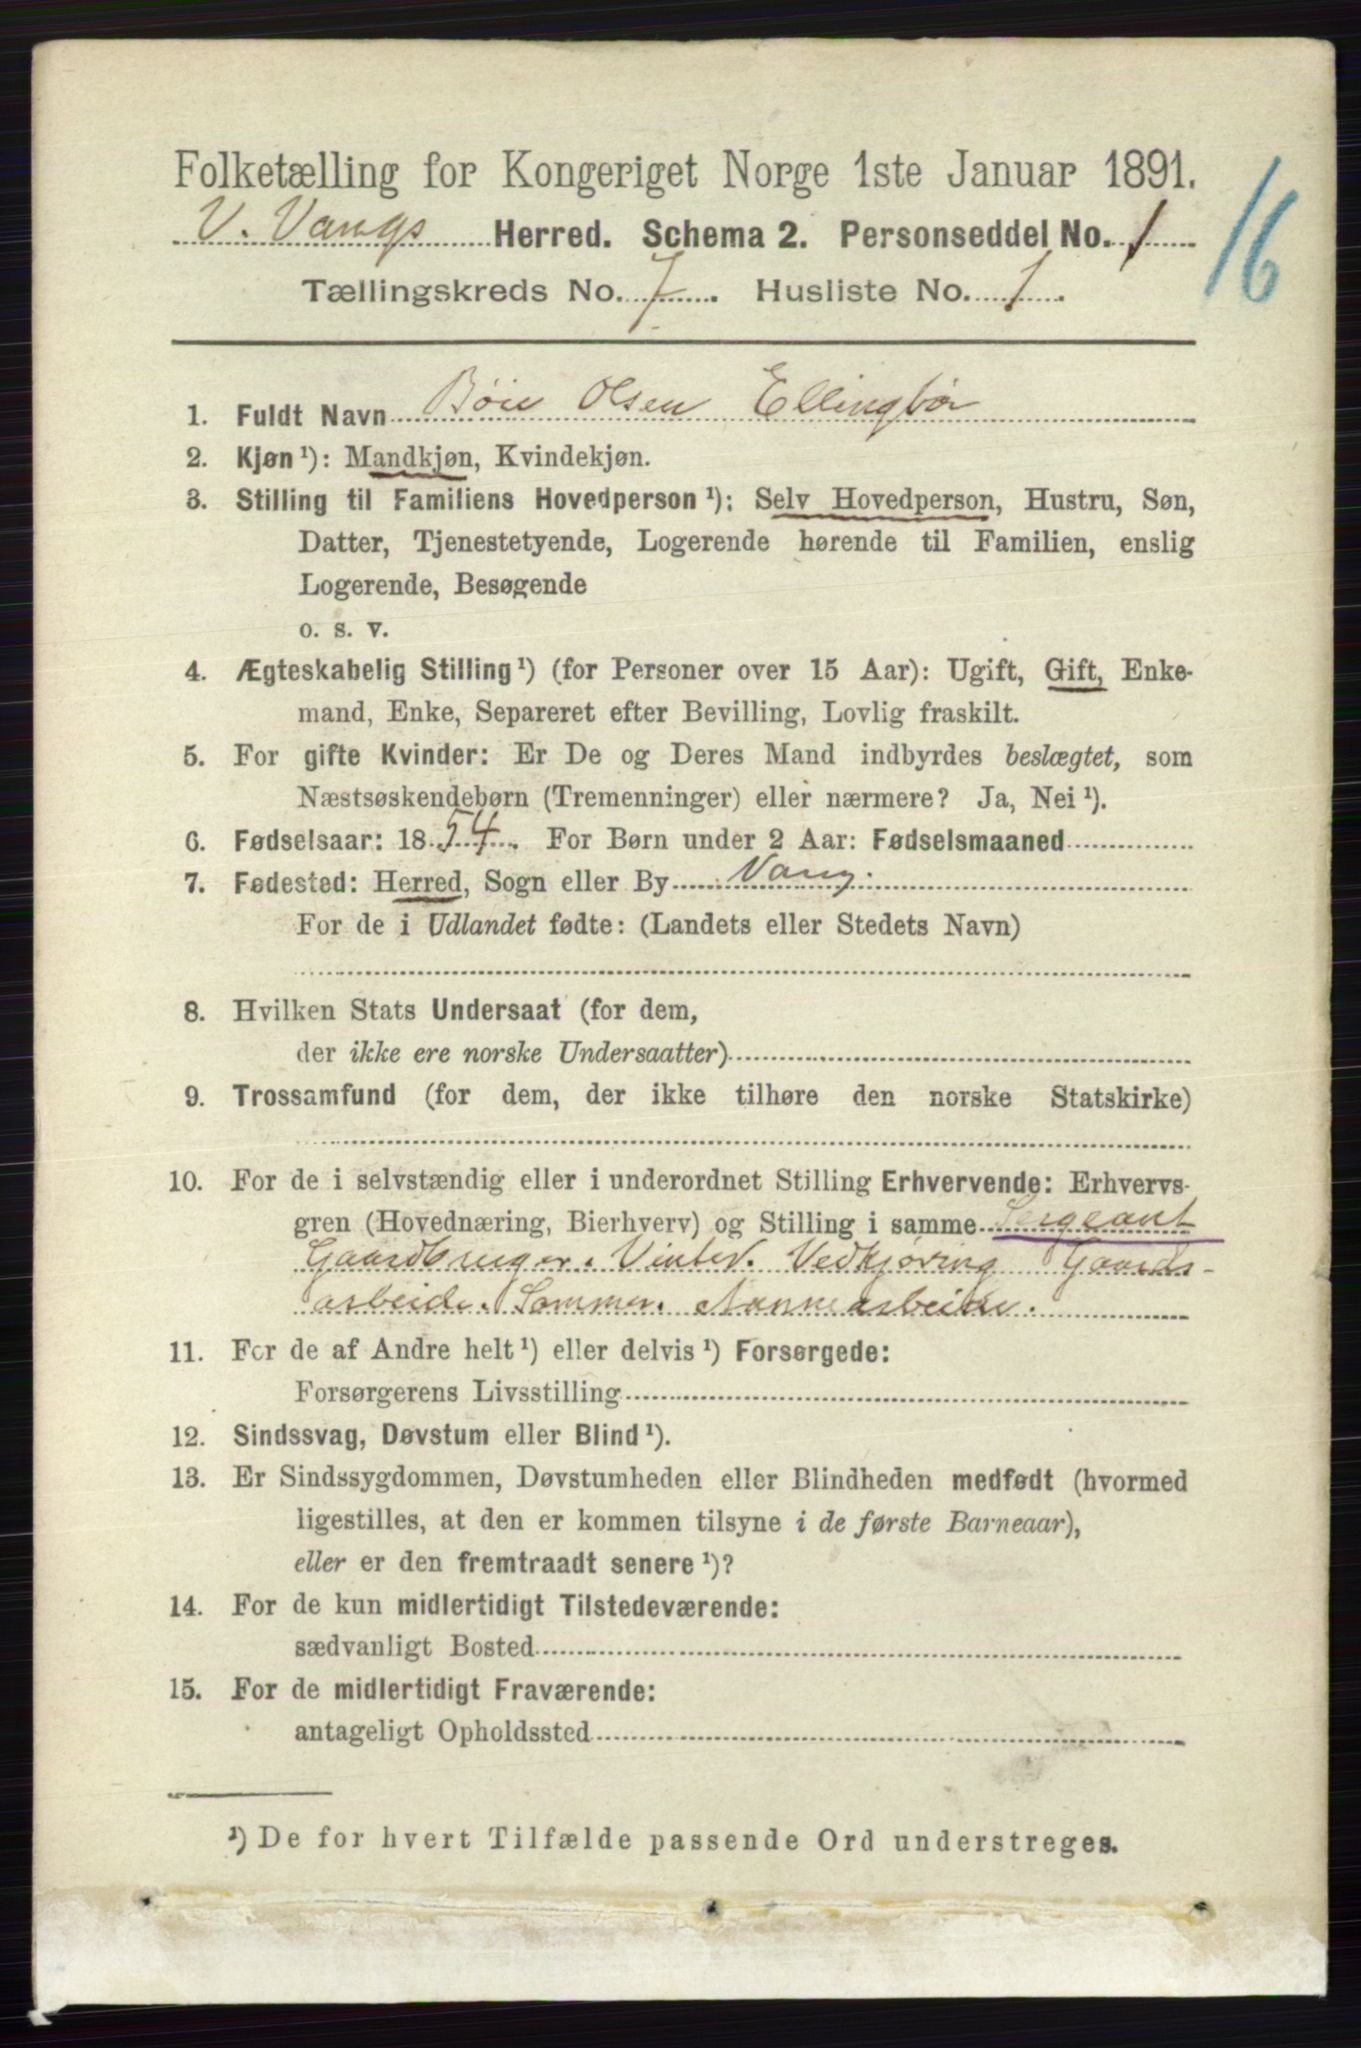 Folketælling for Kongeriget Norge 1ste Januar 1891.
16
V. Vangs Herred. Schema 2. Personseddel No. 1
Tællingskreds No. 7. Husliste No. 1.
1. Fuldt Navn Böie Olsen Ellingbör
2. Kjøn ¹): Mandkjøn, Kvindekjøn.
3. Stilling til Familiens Hovedperson ¹): Selv Hovedperson, Hustru, Søn,
Datter, Tjenestetyende, Logerende hørende til Familien, enslig
Logerende, Besøgende
o. s. v.
4. Ægteskabelig Stilling ¹) (for Personer over 15 Aar): Ugift, Gift, Enke-
mand, Enke, Separeret efter Bevilling, Lovlig fraskilt.
5. For gifte Kvinder: Er De og Deres Mand indbyrdes beslægtet, som
Næstsøskendebørn (Tremenninger) eller nærmere? Ja, Nei ¹).
6. Fødselsaar: 1854. For Børn under 2 Aar: Fødselsmaaned
7. Fødested: Herred, Sogn eller By Vang.
For de i Udlandet fødte: (Landets eller Stedets Navn)
8. Hvilken Stats Undersaat (for dem,
der ikke ere norske Undersaatter)
9. Trossamfund (for dem, der ikke tilhøre den norske Statskirke)
10. For de i selvstændig eller i underordnet Stilling Erhvervende: Erhvervs-
gren (Hovednæring, Bierhverv) og Stilling i samme Sergeant
Gaardbruger. Vinter. Vedkjøring Gaards-
arbeide. Sommer. Aannearbeide.
11. For de af Andre helt ¹) eller delvis ¹) Forsørgede:
Forsørgerens Livsstilling
12. Sindssvag, Døvstum eller Blind ¹).
13. Er Sindssygdommen, Døvstumheden eller Blindheden medfødt (hvormed
ligestilles, at den er kommen tilsyne i de første Barneaar),
eller er den fremtraadt senere ¹)?
14. For de kun midlertidigt Tilstedeværende:
sædvanligt Bosted
15. For de midlertidigt Fraværende:
antageligt Opholdssted
¹) De for hvert Tilfælde passende Ord understreges.